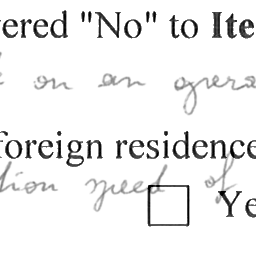 ered "No" to Ite
on an
foreign residence
tion speed of
Ye